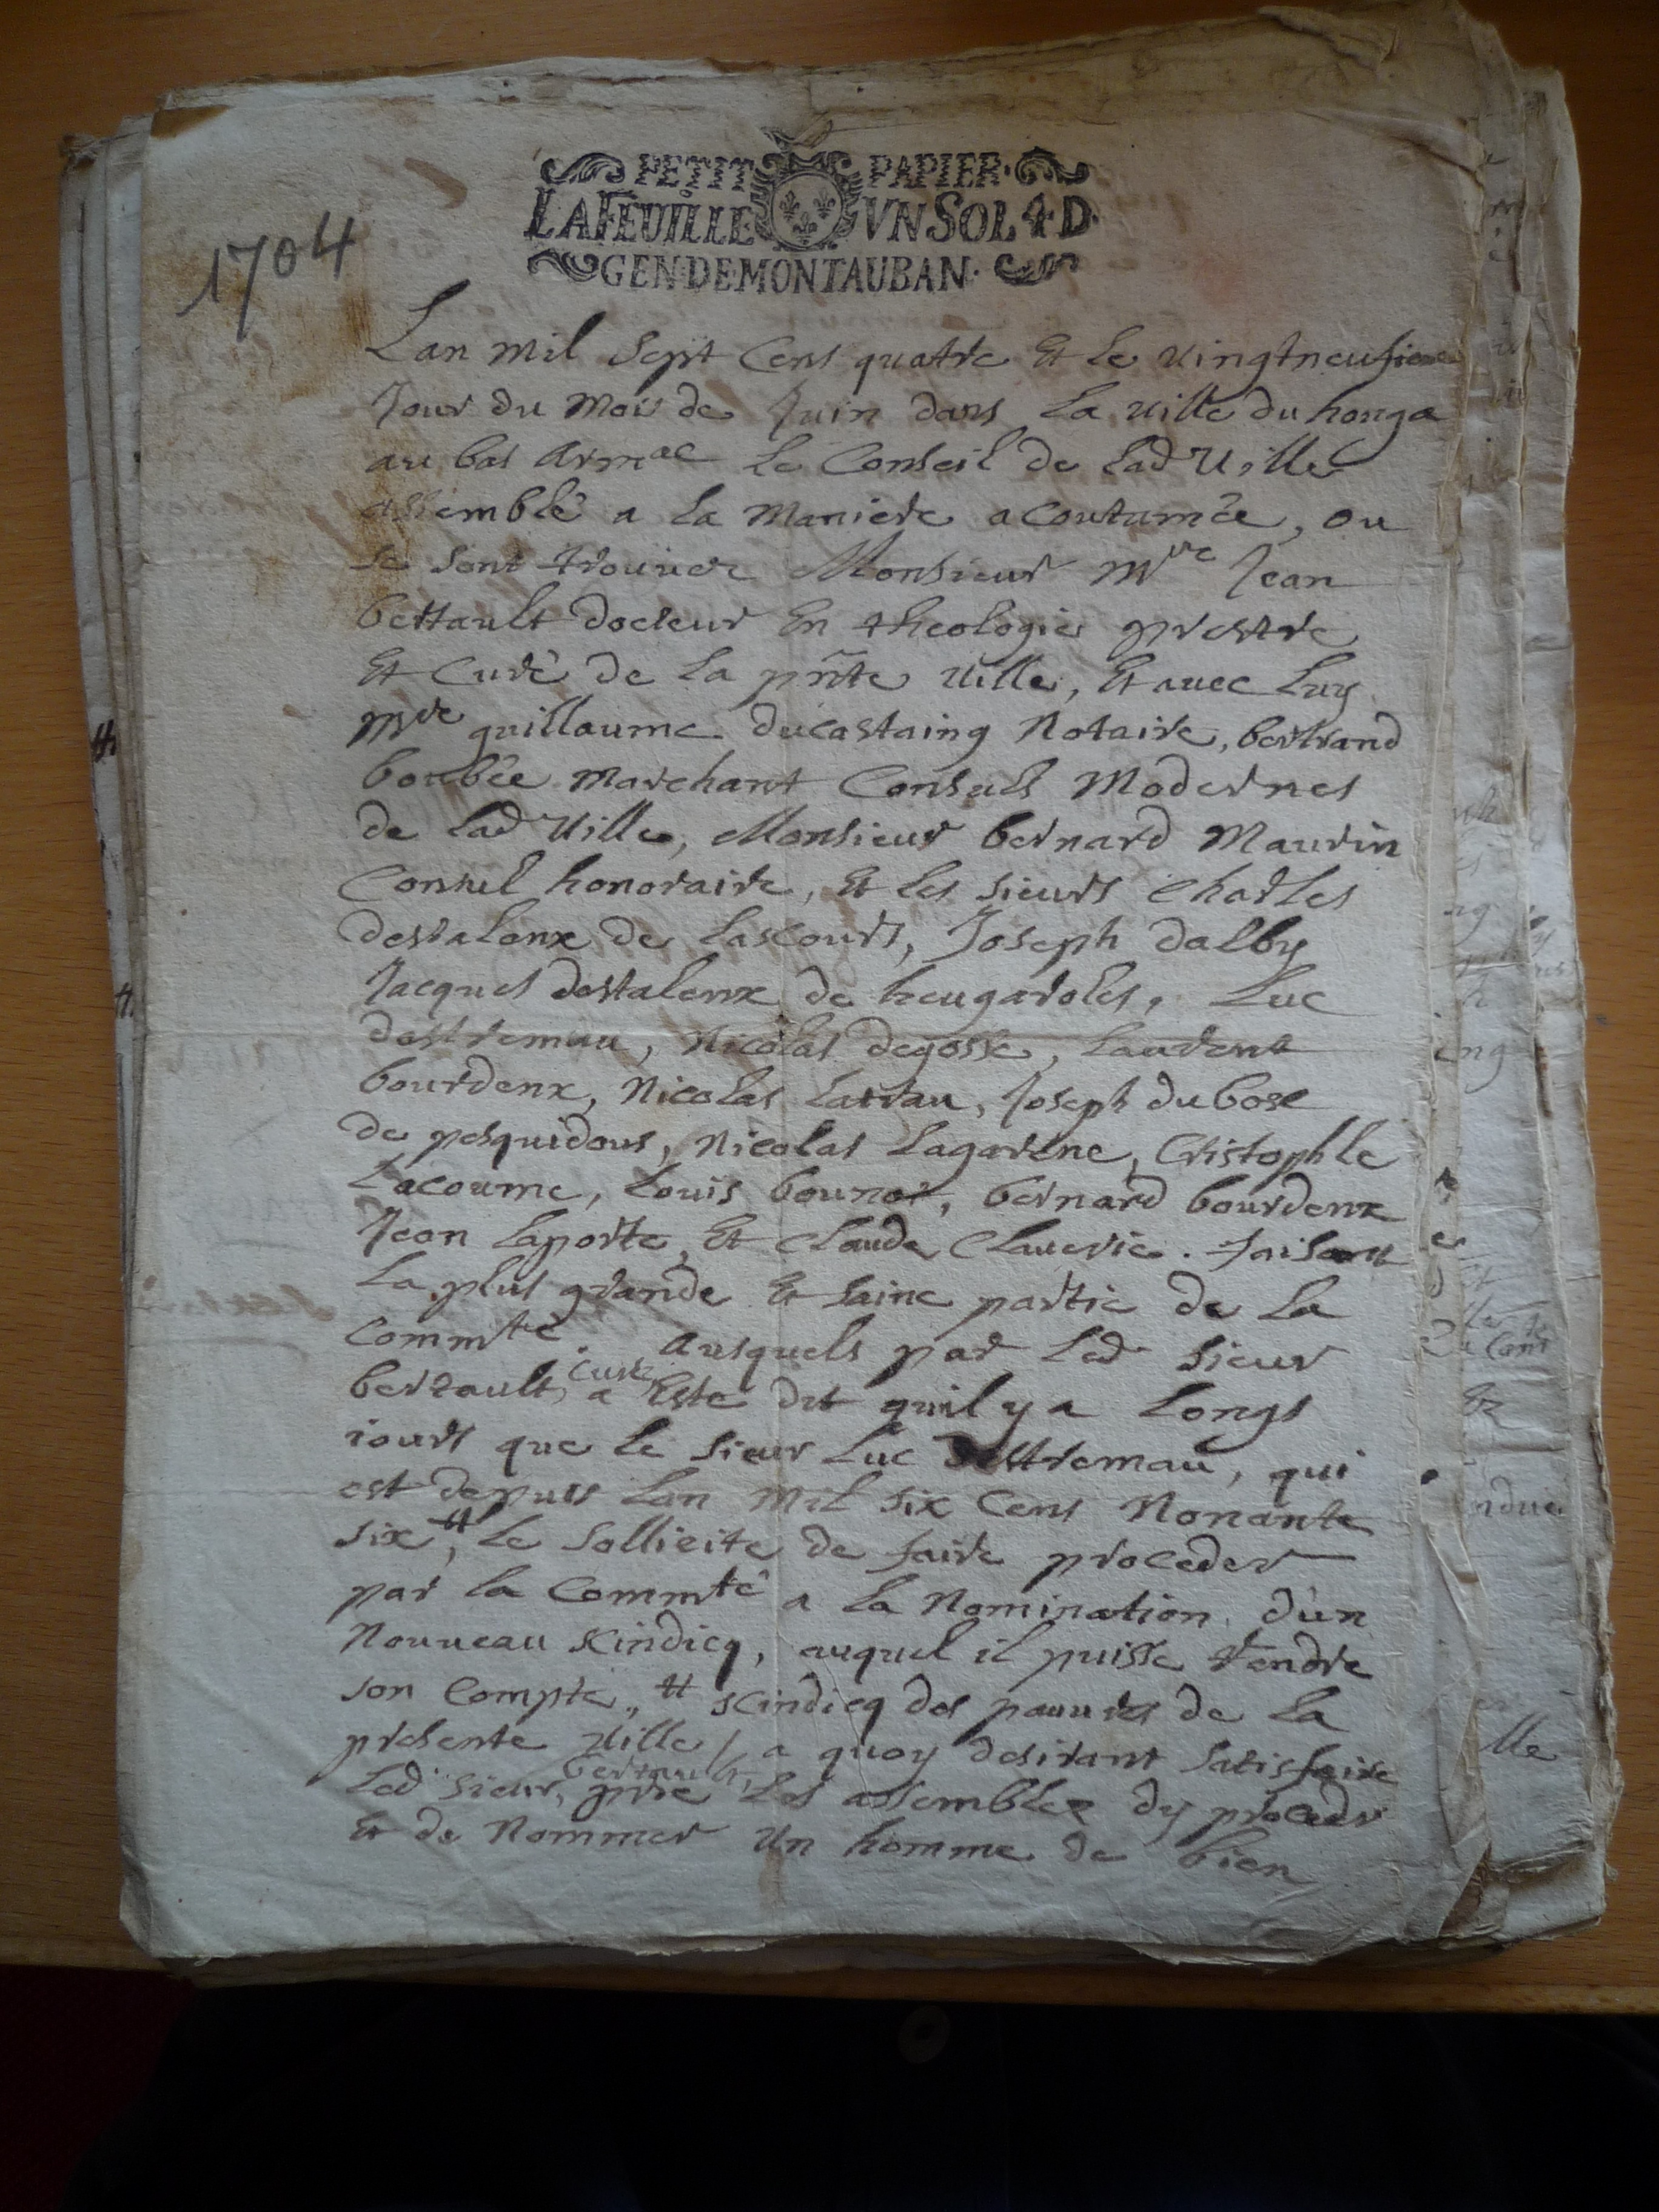 PETIT PAPIER.
LA FEUILLE VN SOL 4 D.
GEN·DE·MONTAUBAN·
1704
Lan mil sept Cens quatre Et le vingtneufieme
Jour du mois de Juin dans La ville du houga
au bas Armac Le Conseil de Lad Ville
assemblé a La maniere acoutumée, ou
se sont trouvez Monsieur Mre Jean
bertault docteur En theologie prestre
Et Curé de La pñte Ville, Et avec Luy
Mre guillaume ducastaing Notaire, bertrand
boubée marchant Consuls Modernes
de Lad Ville, Monsieur bernard Maurin
Consul honoraire, Et Les sieurs Charles
destalenx de Lascours, Joseph dalby
Jacques destalenx de heugaroles, Luc
destremau, Nicolas degosse, Laurent
bourdenx, Nicolas Latrau, Joseph dubosc
de pesquidous, Nicolas Lagarene, Cristophle
Lacoume, Louis bounot, bernard bourdenx
Jean Laporte, Et Claude Claverie. faisant
La plus grande Et saine partie de La
Commté. Ausquels par Led sieur
bertault, Curé a Esté dit quil y a Longs
jours que le sieur Luc destremau, qui
est depuis Lan mil six Cens Nonante
six, Le sollicite de faire proceder
par La Commté a La Nomination d'un
Nouveau scindicq, auquel il puisse rendre
son Compte, scindicq des pauvres de La
presente Ville, a quoy desirant satisfaire
Led sieur bertault, prie Les assemblez dy proceder
Et de Nommer Un homme de bien